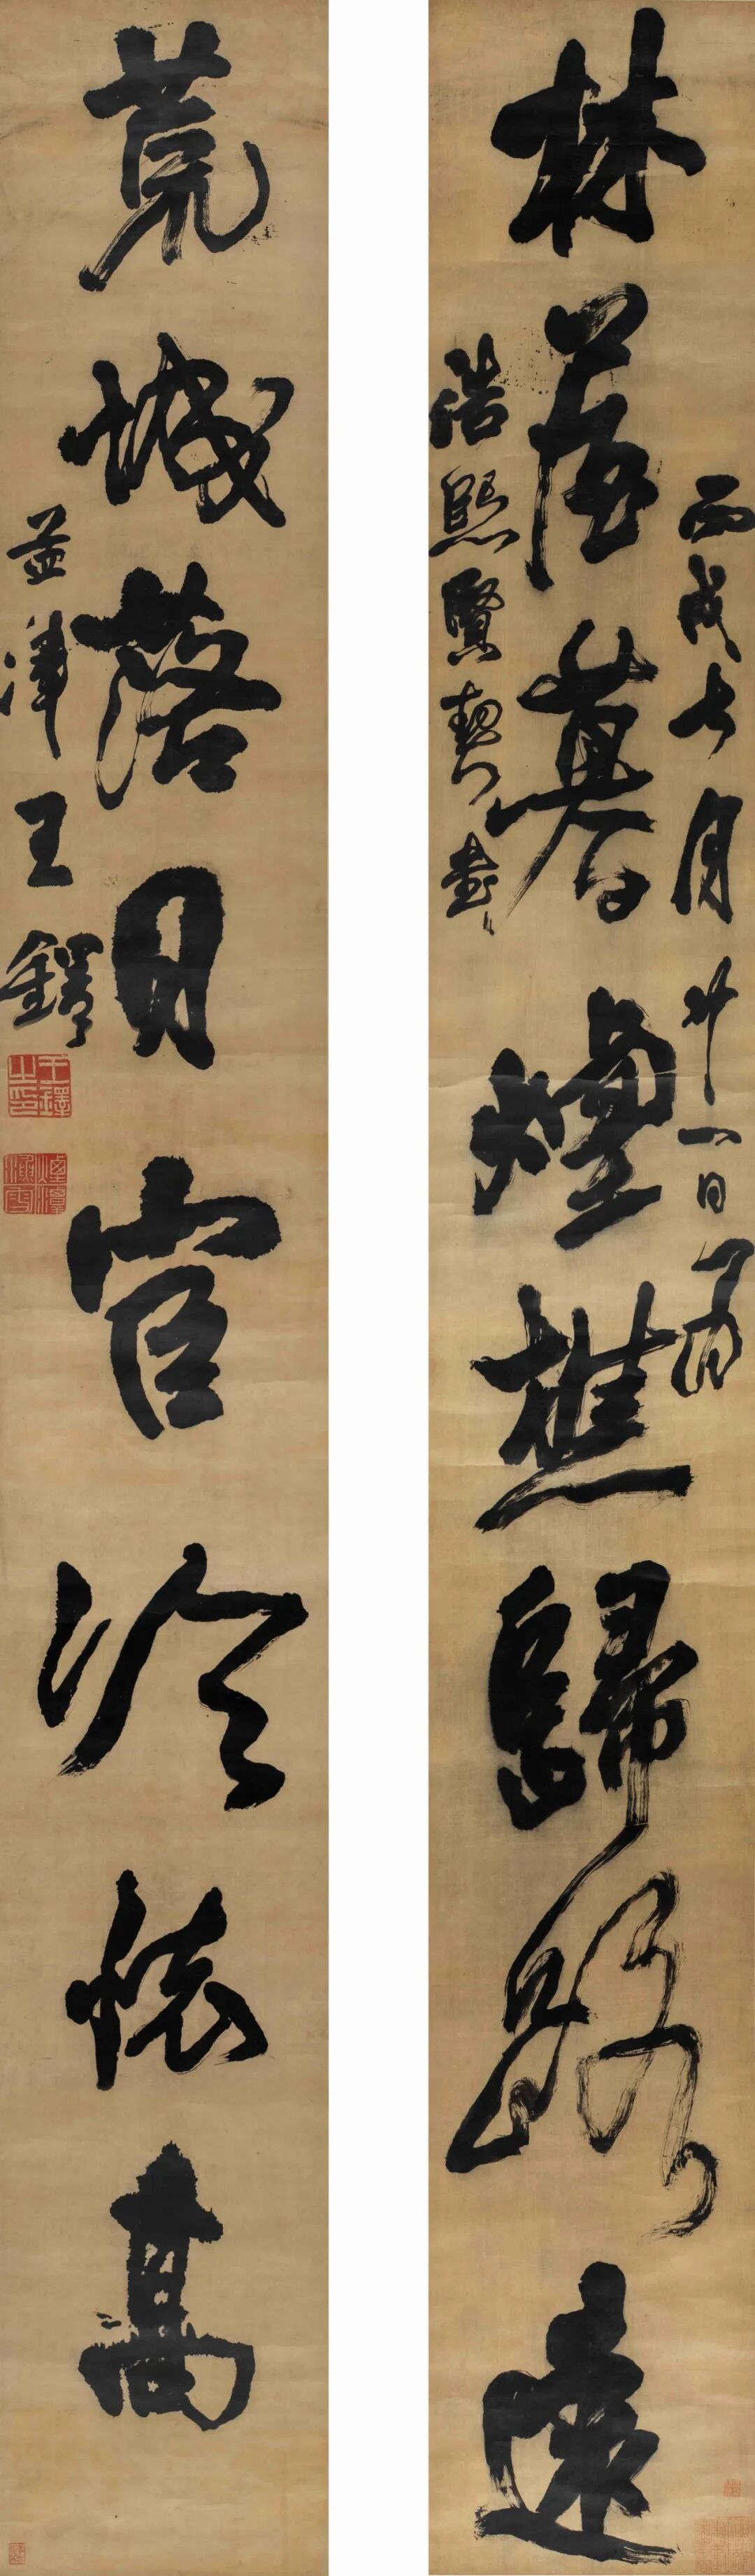 丙戌七月廿一日為
林屋暮煙樵歸路遠
浩熙賢契書
荒城落日官冷懷高
孟津王鐸
王鐸之印
煙潭漁叟